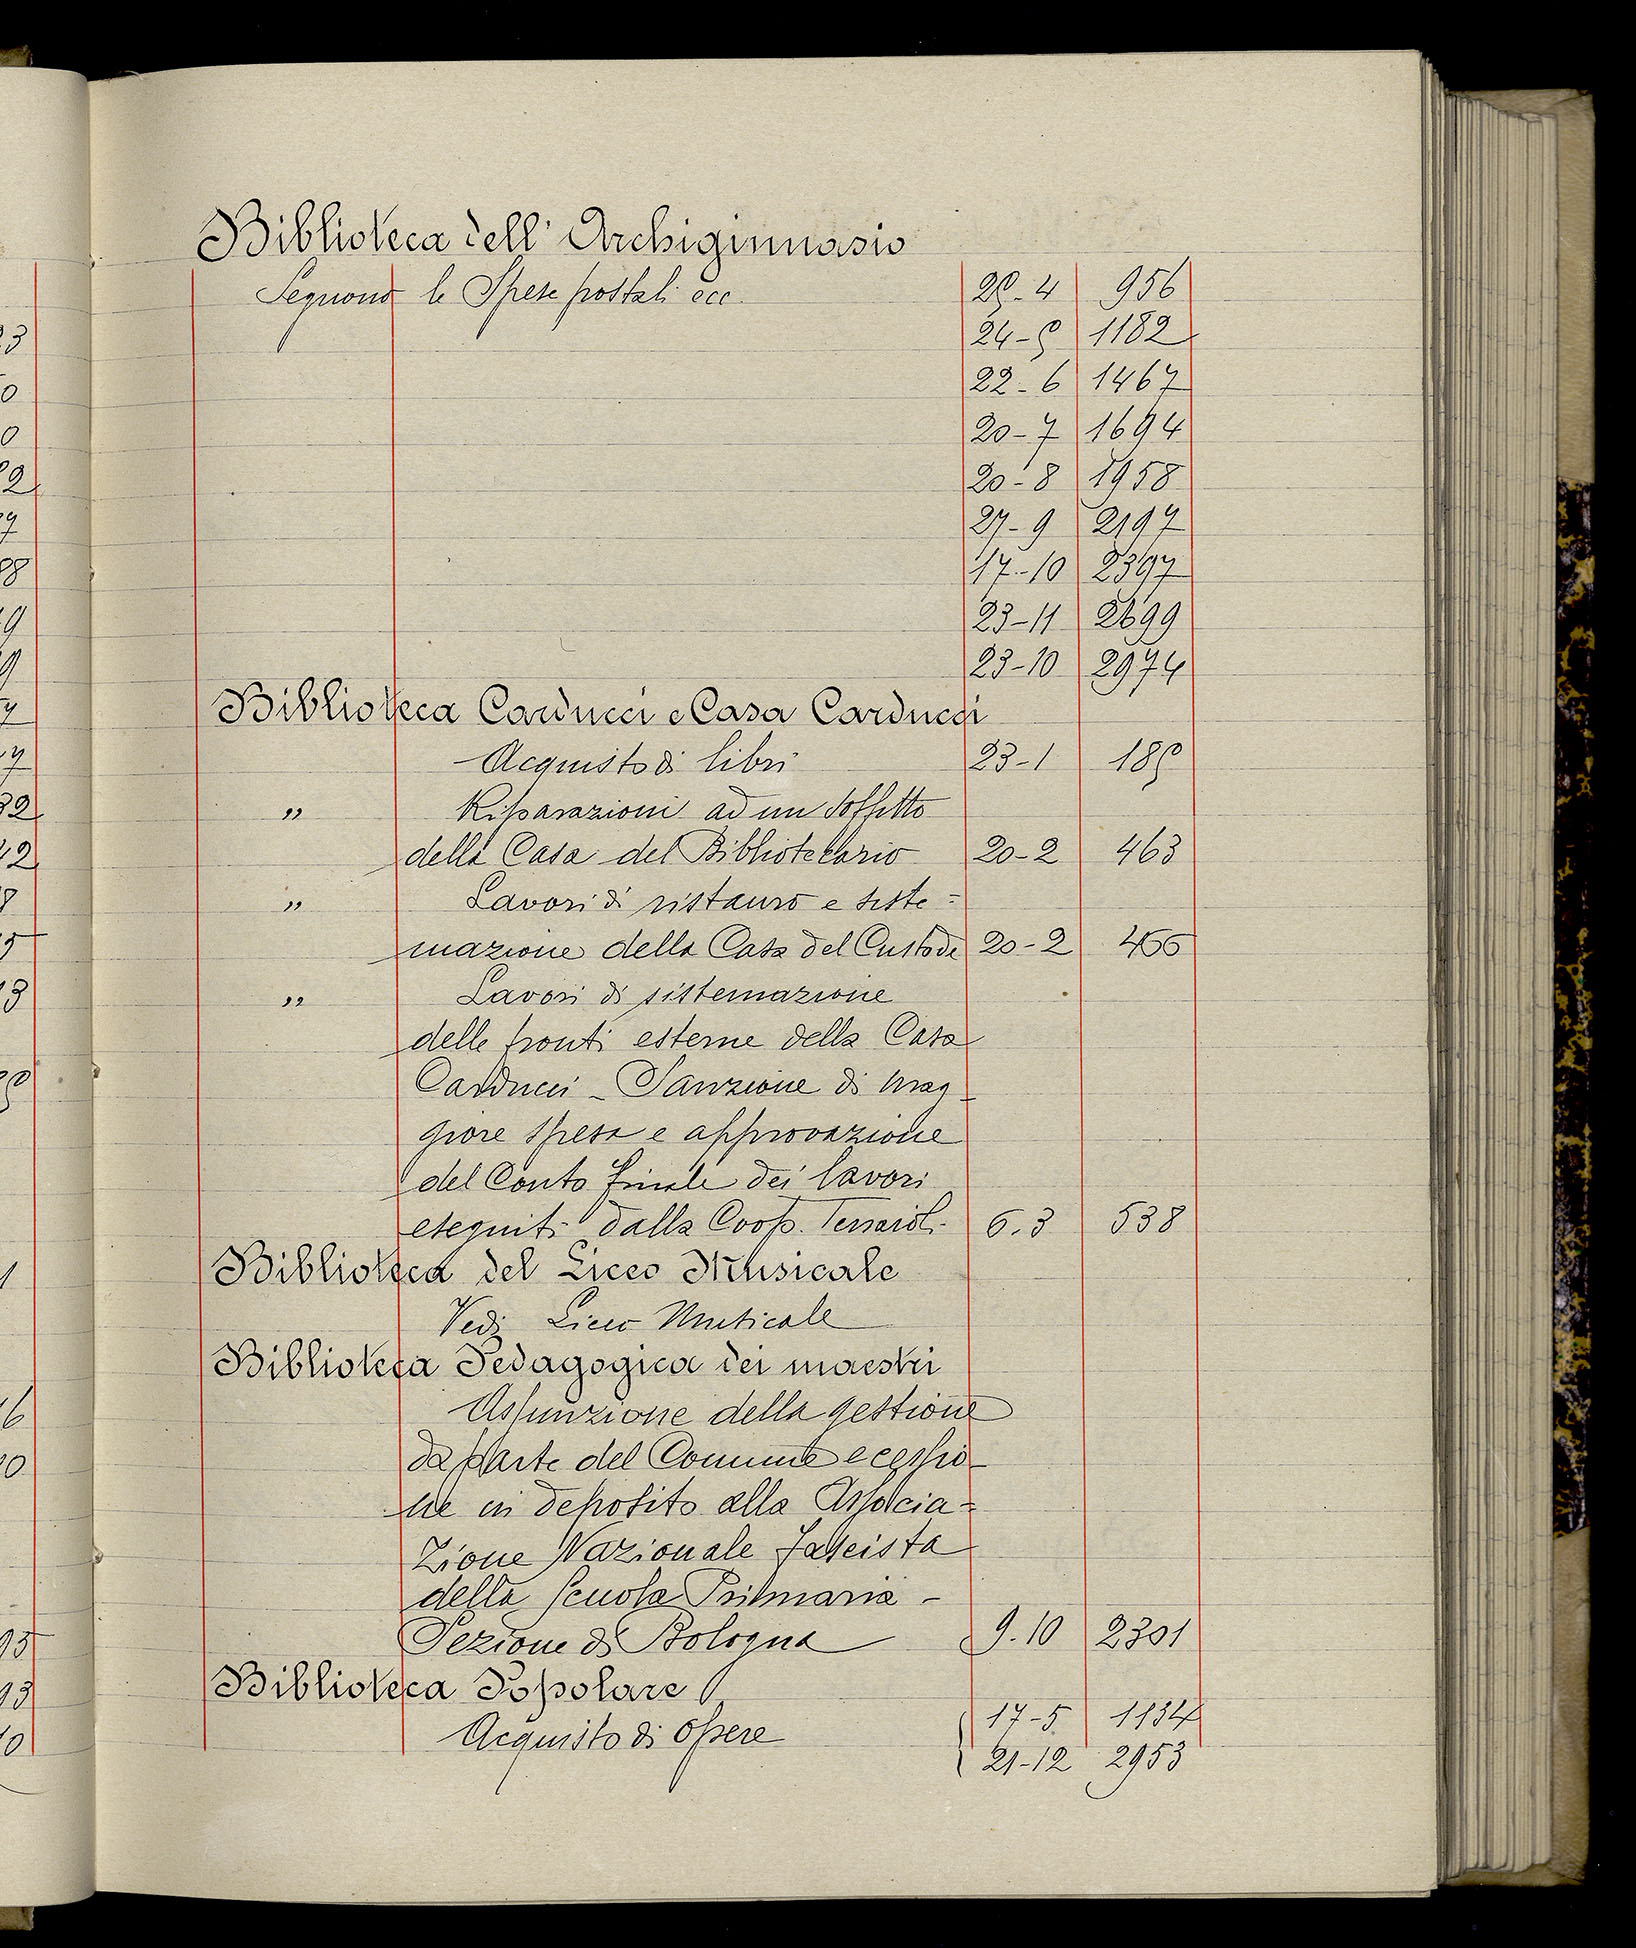 Biblioteca dell' Archiginnasio
Seguono le Spese postali ecc. 25-4 956
24-5 1182
22-6 1467
20-7 1694
20-8 1958
27-9 2197
17-10 2397
23-11 2699
23-10 2974
Biblioteca Carducci e Casa Carducci
Acquisto di libri 23-1 185
" Riparazioni ad un soffitto
della Casa del Bibliotecario 20-2 463
" Lavori di ristauro e siste=
mazione della Casa del Custode 20-2 466
" Lavori di sistemazione
delle fronti esterne della Casa
Carducci - Sanzione di mag-
giore spesa e approvazione
del Conto finale dei lavori
eseguiti dalla Coop. Terraioli 6.3 538
Biblioteca del Liceo Musicale
Vedi Liceo Musicale
Biblioteca Pedagogica dei maestri
Assunzione della gestione
da parte del Comune e cessio-
ne in deposito alla Associa=
zione Nazionale fascista
della Scuola Primaria -
Sezione di Bologna 9.10 2301
Biblioteca Popolare
Acquisto di opere 17-5 1134
21-12 2953